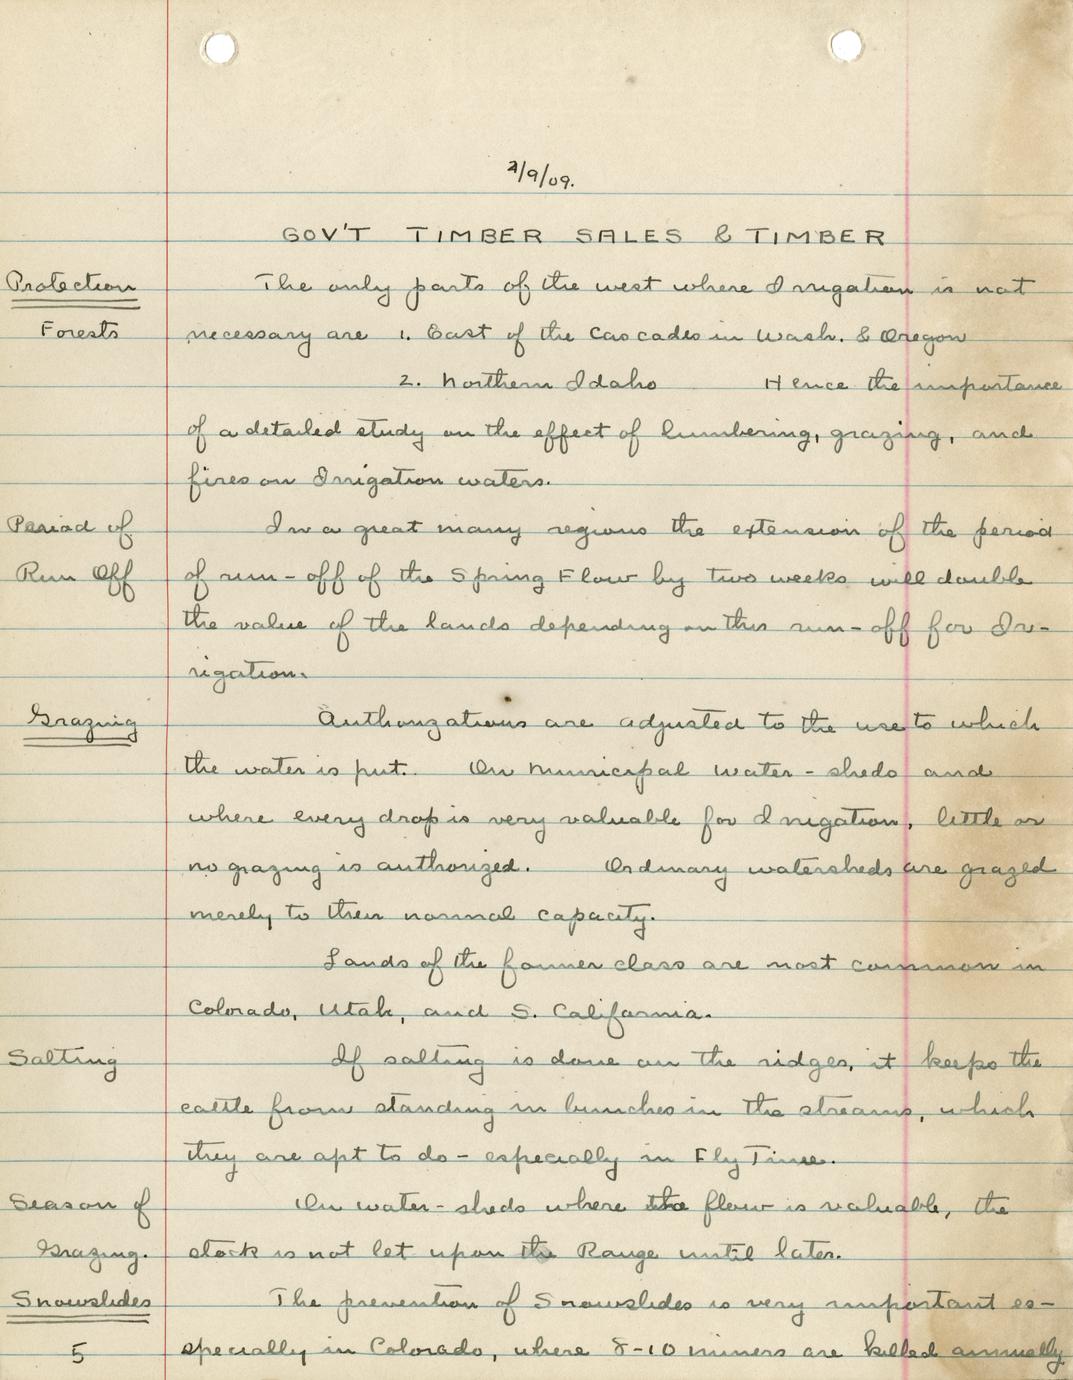 2/9/09.
GOV'T TIMBER SALES & TIMBER
Protection The only parts of the west where Irrigation is not
Forests necessary are 1. East of the Cascades in Wash. & Oregon
2. Northern Idaho Hence the importance
of a detailed study on the effect of lumbering, grazing, and
fires on Irrigation waters.
Period of In a great many regions the extension of the period
Run Off of run-off of the Spring Flow by two weeks will double
the value of the lands depending on this run-off for Ir-
rigation.
Grazing Authorizations are adjusted to the use to which
the water is put. On Municipal water-sheds and
where every drop is very valuable for Irrigation, little or
no grazing is authorized. Ordinary watersheds are grazed
merely to their normal capacity.
Lands of the former class are most common in
Colorado, Utah, and S. California.
Salting If salting is done on the ridges, it keeps the
cattle from standing in bunches in the streams, which
they are apt to do - especially in Fly Time.
Season of On water-sheds where the flow is valuable, the
Grazing. stock is not let upon the Range until later.
Snowslides The prevention of Snowslides is very important es-
5 specially in Colorado, where 8-10 miners are killed annually